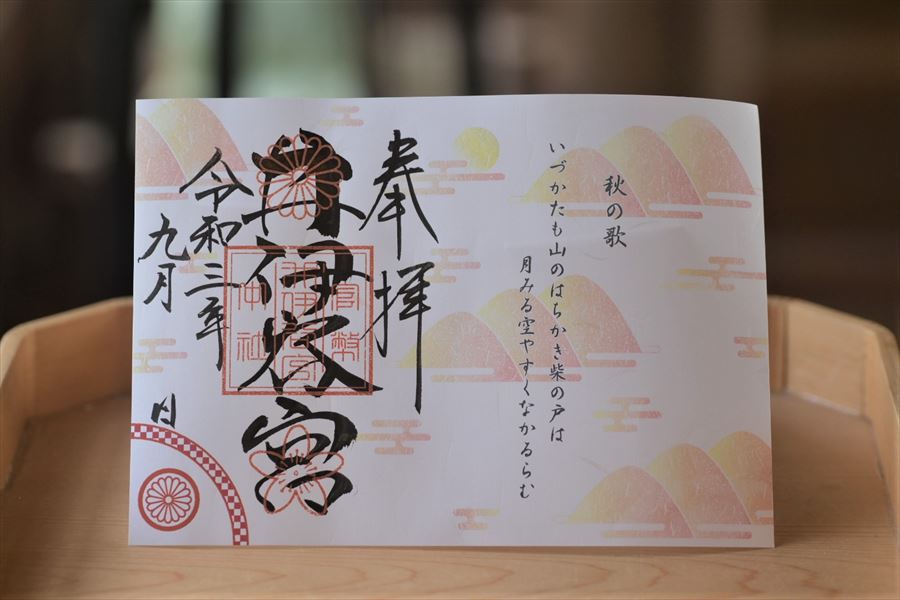 秋の歌
いづかたも山のはちかき柴の戸は
月みる空やすくなかるらむ
奉拝
井伊谷宮
官幣
井伊谷宮
中社
令和三年
九月 日